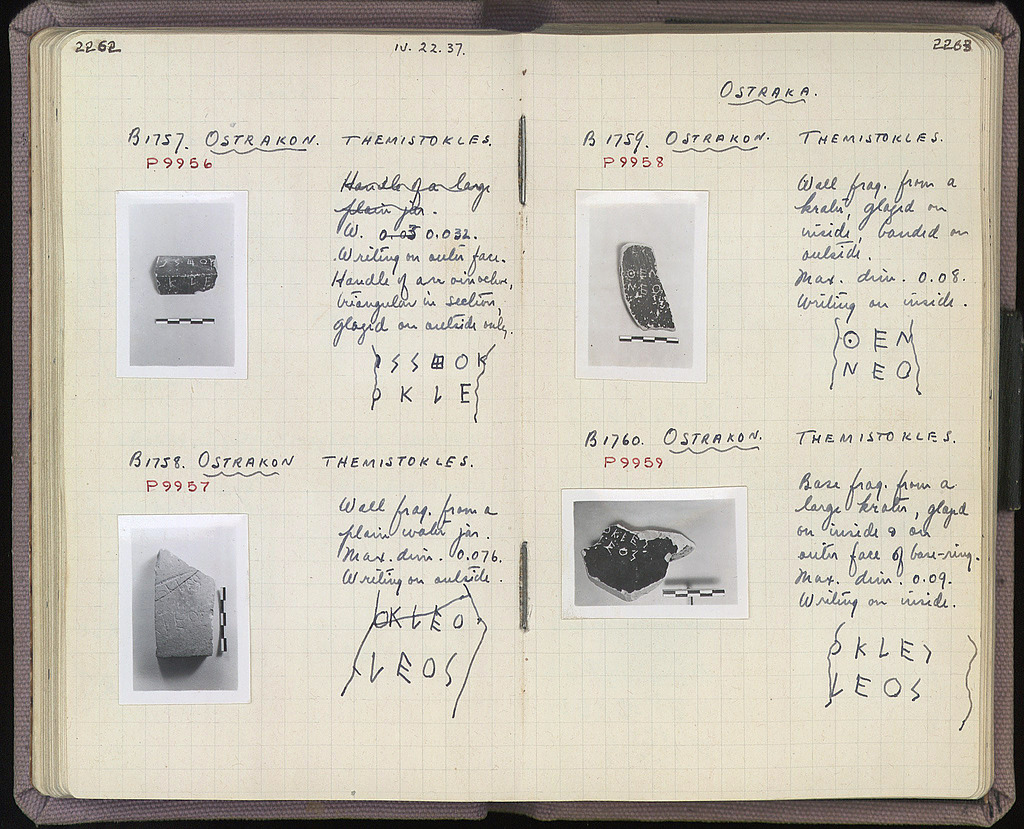 2262
IV. 22. 37.
B1757. OSTRAKON. THEMISTOKLES.
P9956
Handle of a large
plain jar.
W. 0.03 0.032.
Writing on outer face.
Handle of an oinochoe,
triangular in section,
glazed on outside only.
SS⊞OK
OKLE
B1758. OSTRAKON THEMISTOKLES.
P9957
Wall frag. from a
plain water jar.
Max. dim. 0.076.
Writing on outside.
OKLEO
LEOS
2263
OSTRAKA.
B1759. OSTRAKON. THEMISTOKLES.
P9958
Wall frag. from a
krater, glazed on
inside, banded on
outside.
Max. dim. 0.08.
Writing on inside.
⊙EN
NEO
B1760. OSTRAKON. THEMISTOKLES.
P9959
Base frag. from a
large krater, glazed
on inside & on
outer face of base-ring.
Max. dim. 0.09.
Writing on inside.
OKLE
LEOS